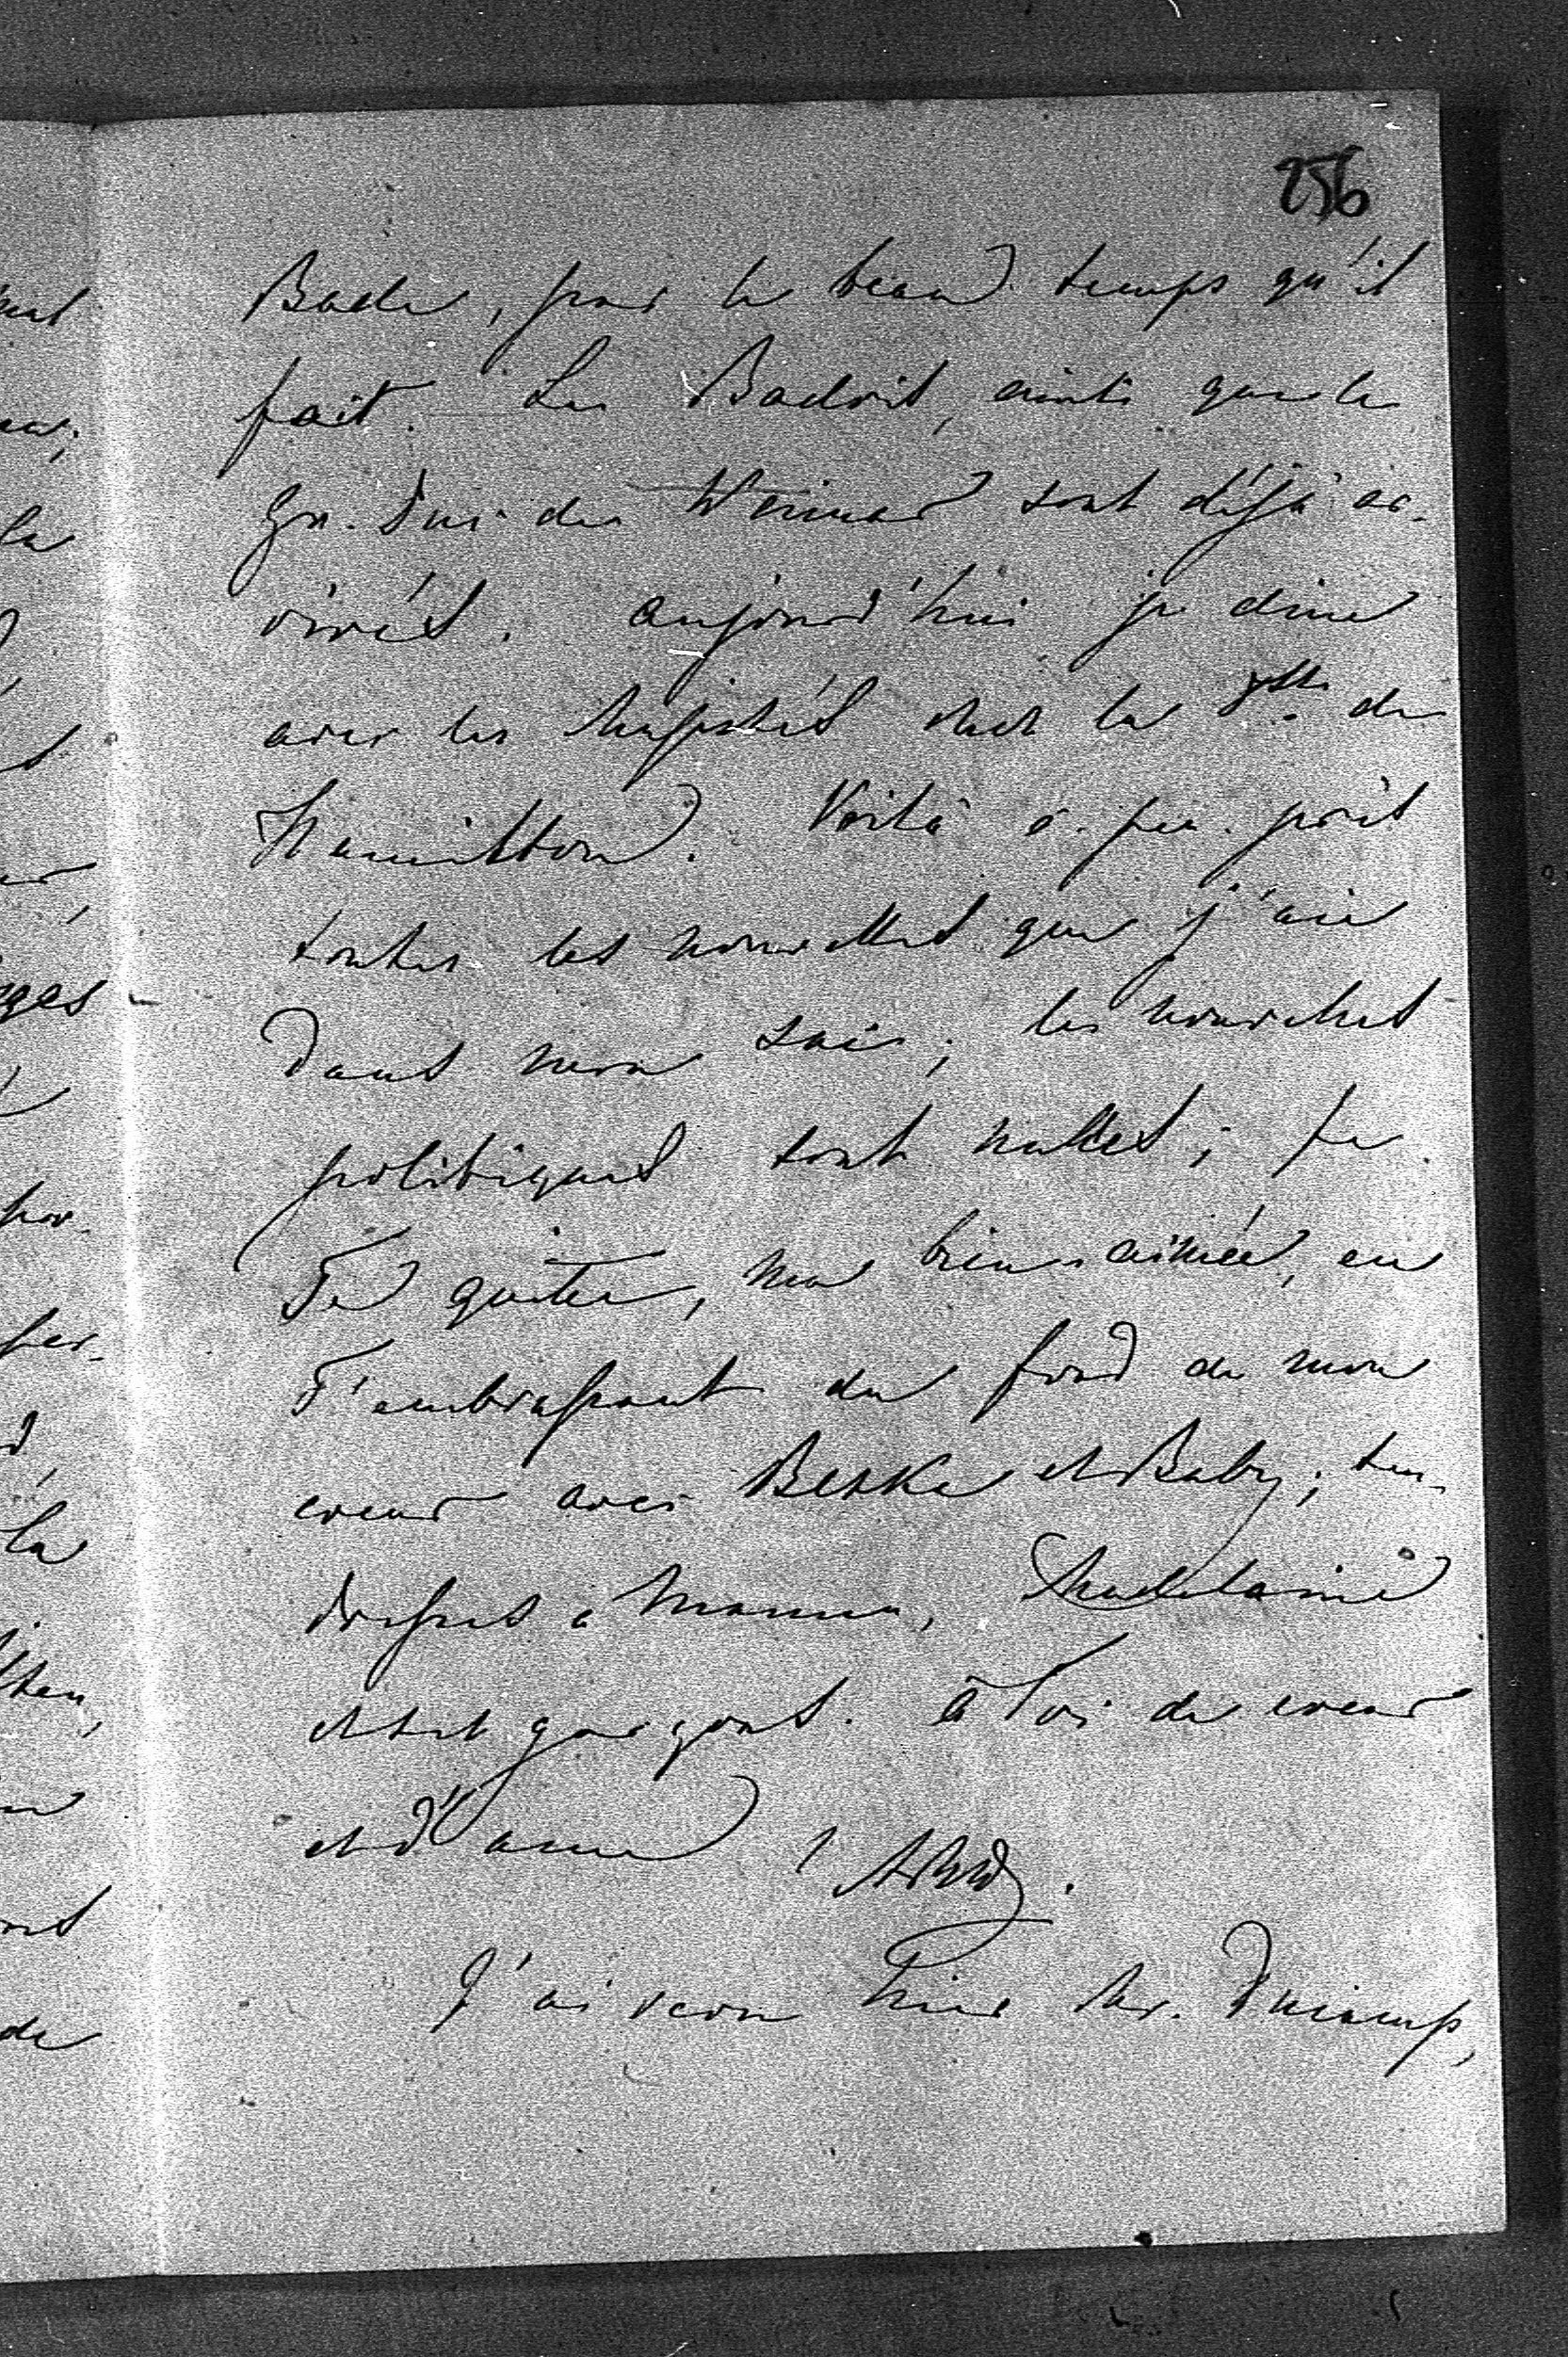 256
Bade, par le beau temps qu'il
fait. Les Badois, ainsi que le
Gr. Duc de Weimar sont déjà ar-
rivés. Aujourd'hui je dine
avec les Majestés chez la de
Hamilton. Voilà à peu près
toutes les nouvelles que j'aie
dans mon sac; les nouvelles
politiques sont nulles; je
Te quitte, ma bien aimée, en
T'embrassant du fond de mon
coeur avec et Baby; ten-
dresses à Maman, Madelaine
et ses garçons. à Toi de coeur
et d'ame
J'ai vu hier Mr. Ducamp,